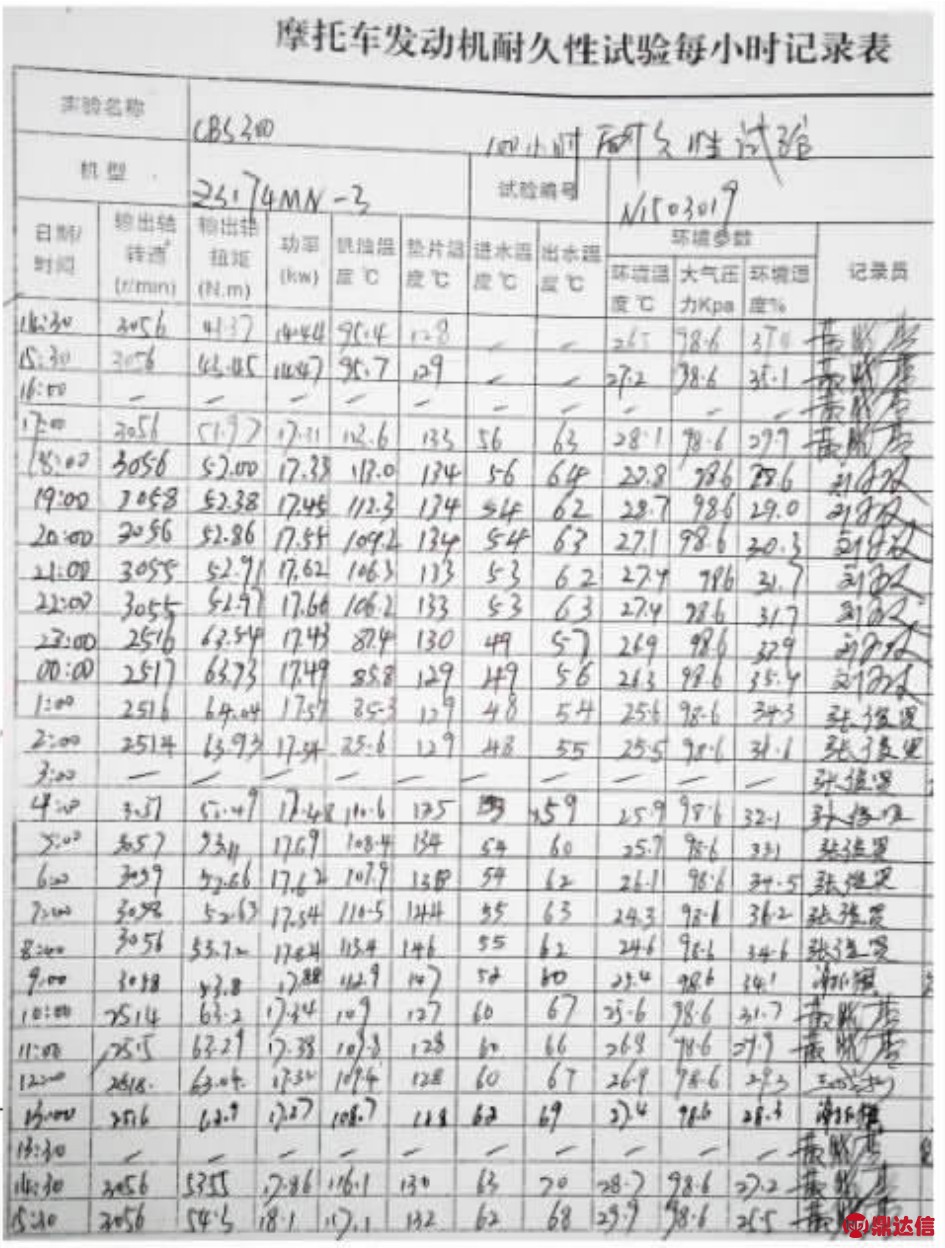 摩托车发动机耐久性试验每小时记录表
实验名称 CBS300 100小时耐久性试验
机型 ZS174MN-3 试验编号 N1503019
日期/时间 输出轴转速(r/min) 输出轴扭矩(N.m) 功率(kw) 机油温度℃ 垫片温度℃ 进水温度℃ 出水温度℃ 环境参数 环境温度℃ 大气压力Kpa 环境湿度% 记录员
14:30 3056 41.37 14.44 95.4 128 — — 98.6
15:30 3056 43.45 14.47 95.7 129 — — 27.2 98.6 35.1
16:00 — — — — — — — — — —
17:00 3056 51.97 17.31 113.6 133 56 63 28.1 98.6 29.9
18:00 3056 52.00 17.33 113.0 134 56 64 98.6
19:00 3058 52.38 17.45 112.3 134 54 62 28.7 98.6 29.0
20:00 3056 52.86 17.55 109.2 134 54 63 27.1 98.6 30.3
21:00 3055 52.91 17.62 106.3 133 53 62 27.4 98.6 31.7
22:00 3055 52.97 17.66 106.2 133 53 63 27.4 98.6 31.7
23:00 2516 63.54 17.43 87.4 130 49 57 26.9 98.6 32.9
00:00 2517 63.73 17.49 85.8 129 49 56 26.3 98.6 35.4
1:00 2516 64.04 17.57 85.3 129 48 54 25.6 98.6 34.3
2:00 2514 63.93 17.54 85.6 129 48 55 25.5 98.6 31.6
3:00 — — — — — — — — — —
4:00 110.6 135 59 25.9 98.6 32.1
5:00 3057 53.11 17.69 108.4 134 54 60 25.7 98.6 33.1
6:00 3059 52.66 17.62 107.9 138 54 62 26.1 98.6 34.5
7:00 3058 52.63 17.54 110.5 144 55 63 24.3 98.6 36.2
8:00 3056 53.72 113.4 146 55 62 24.6 98.6 34.6
9:00 3058 53.8 17.88 112.9 147 52 60 25.4 98.6 34.1
10:00 2514 63.2 17.34 109 127 60 67 25.6 98.6 31.7
11:00 2515 63.29 17.38 109.8 128 60 66 26.8 98.6 29.9
12:00 2518 63.04 17.32 109.4 128 60 67 26.9 98.6 29.3
13:00 2516 62.9 17.27 108.7 128 62 69 27.4 98.6 28.3
13:30 — — — — — — — — — —
14:30 3056 5355 17.86 116.1 130 63 70 28.7 98.6 27.2
15:30 3056 54.3 18.1 117.1 132 62 68 29.9 98.6 25.5
鼎达信